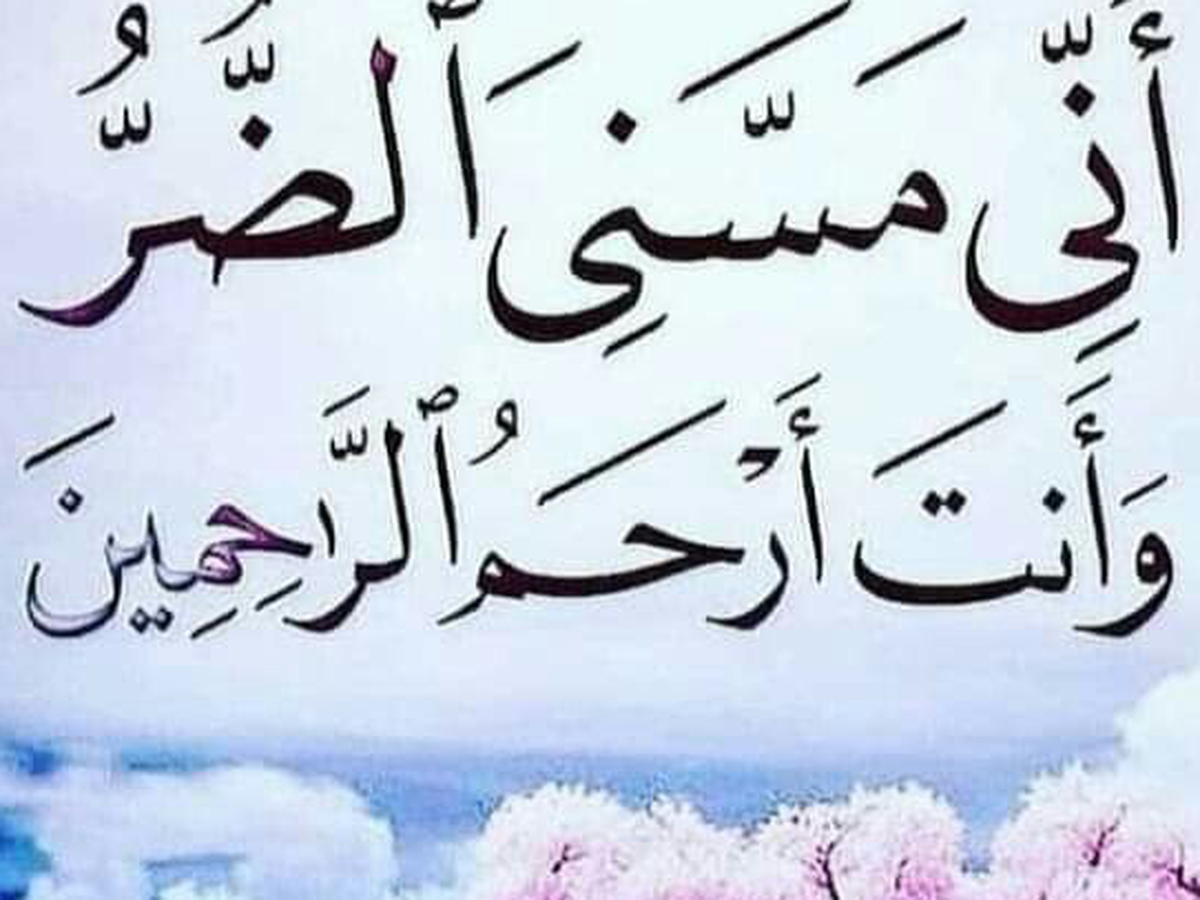 أَنِّي مَسَّنِيَ ٱلضُّرُّ
وَأَنتَ أَرْحَمُ ٱلرَّاحِمِينَ